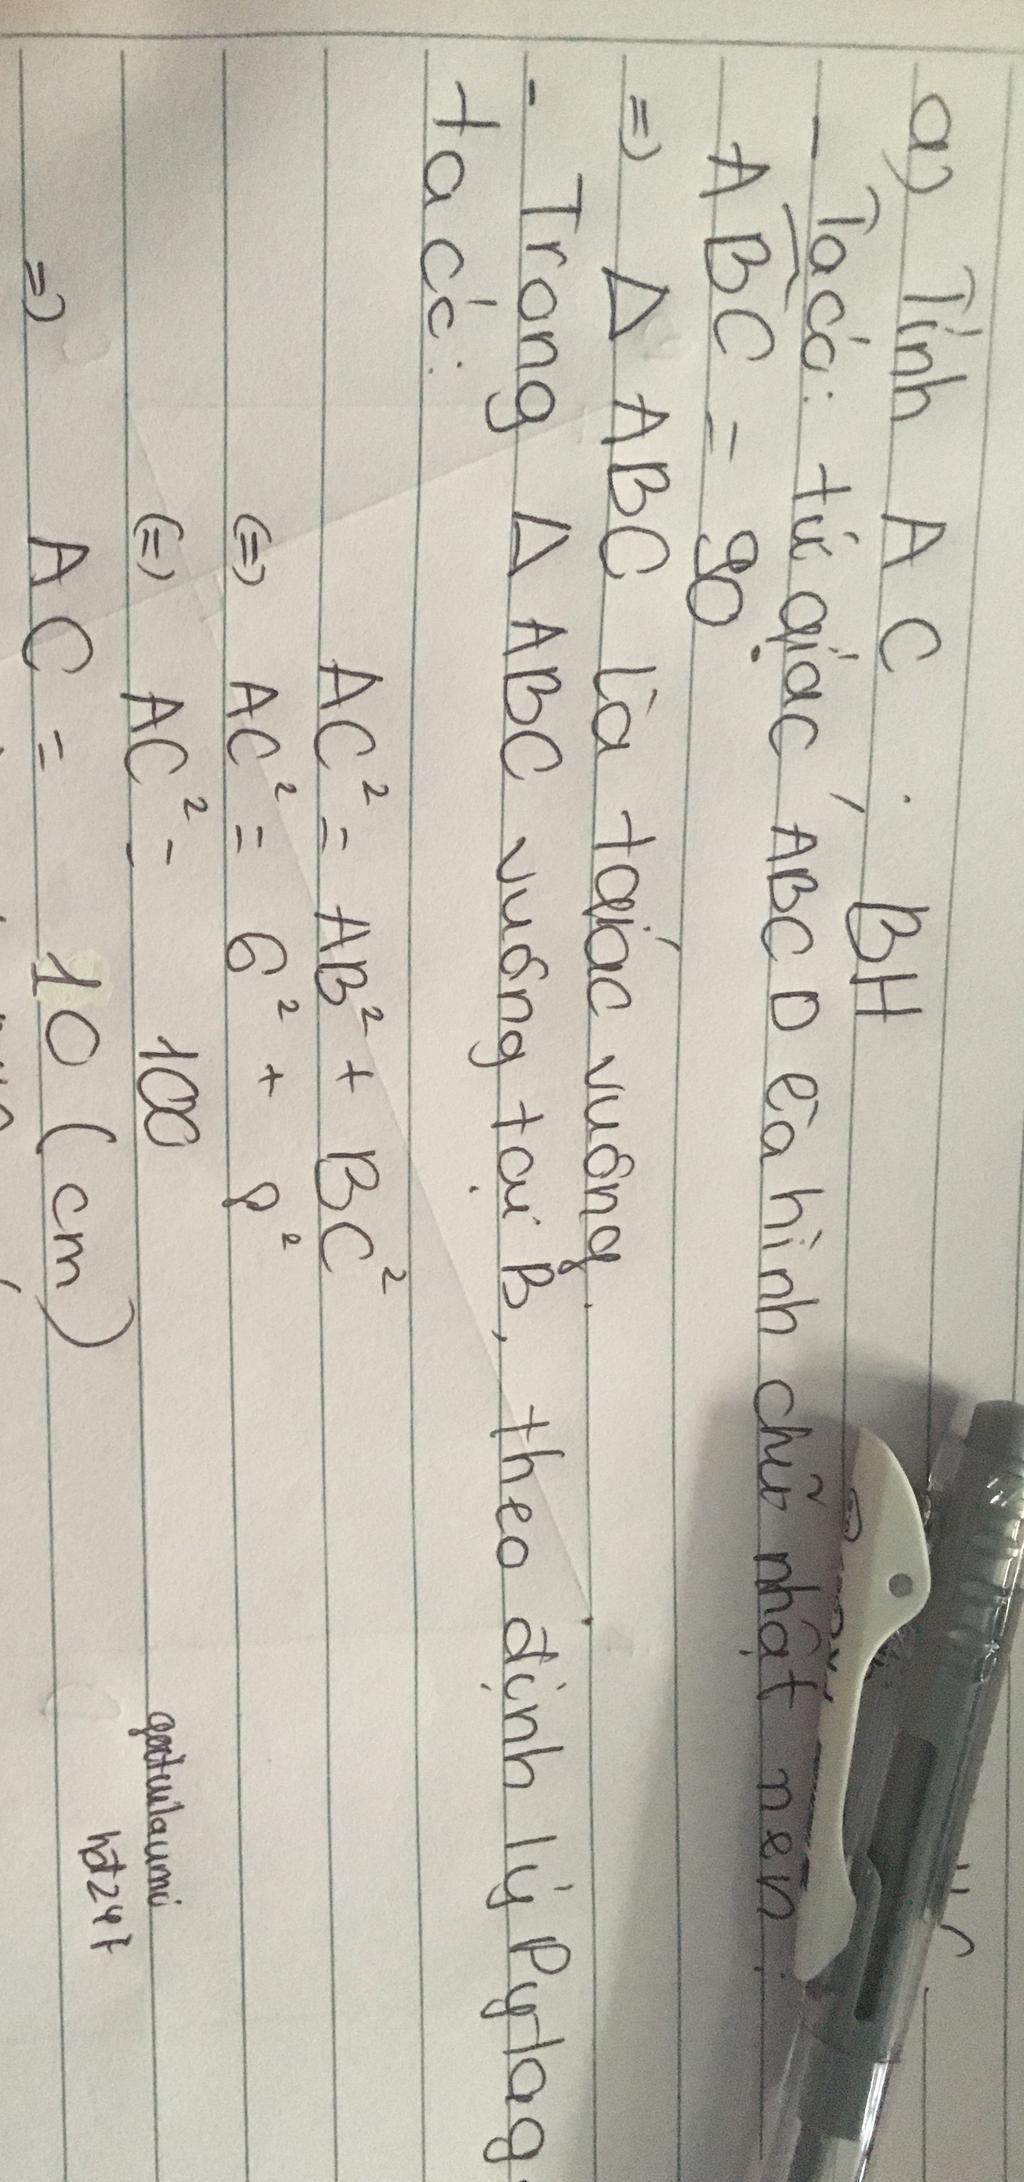 a) Tính AC, BH
- Ta có: tứ giác ABCD là hình chữ nhật nen:
ABC = 90°
=> Δ ABC là tagiác vuông.
- Trong Δ ABC vuông tại B, theo định lý Pytag
ta có:
AC² = AB² + BC²
(=) AC² = 6² + 8²
(=) AC² = 100
=> AC = 10 (cm)